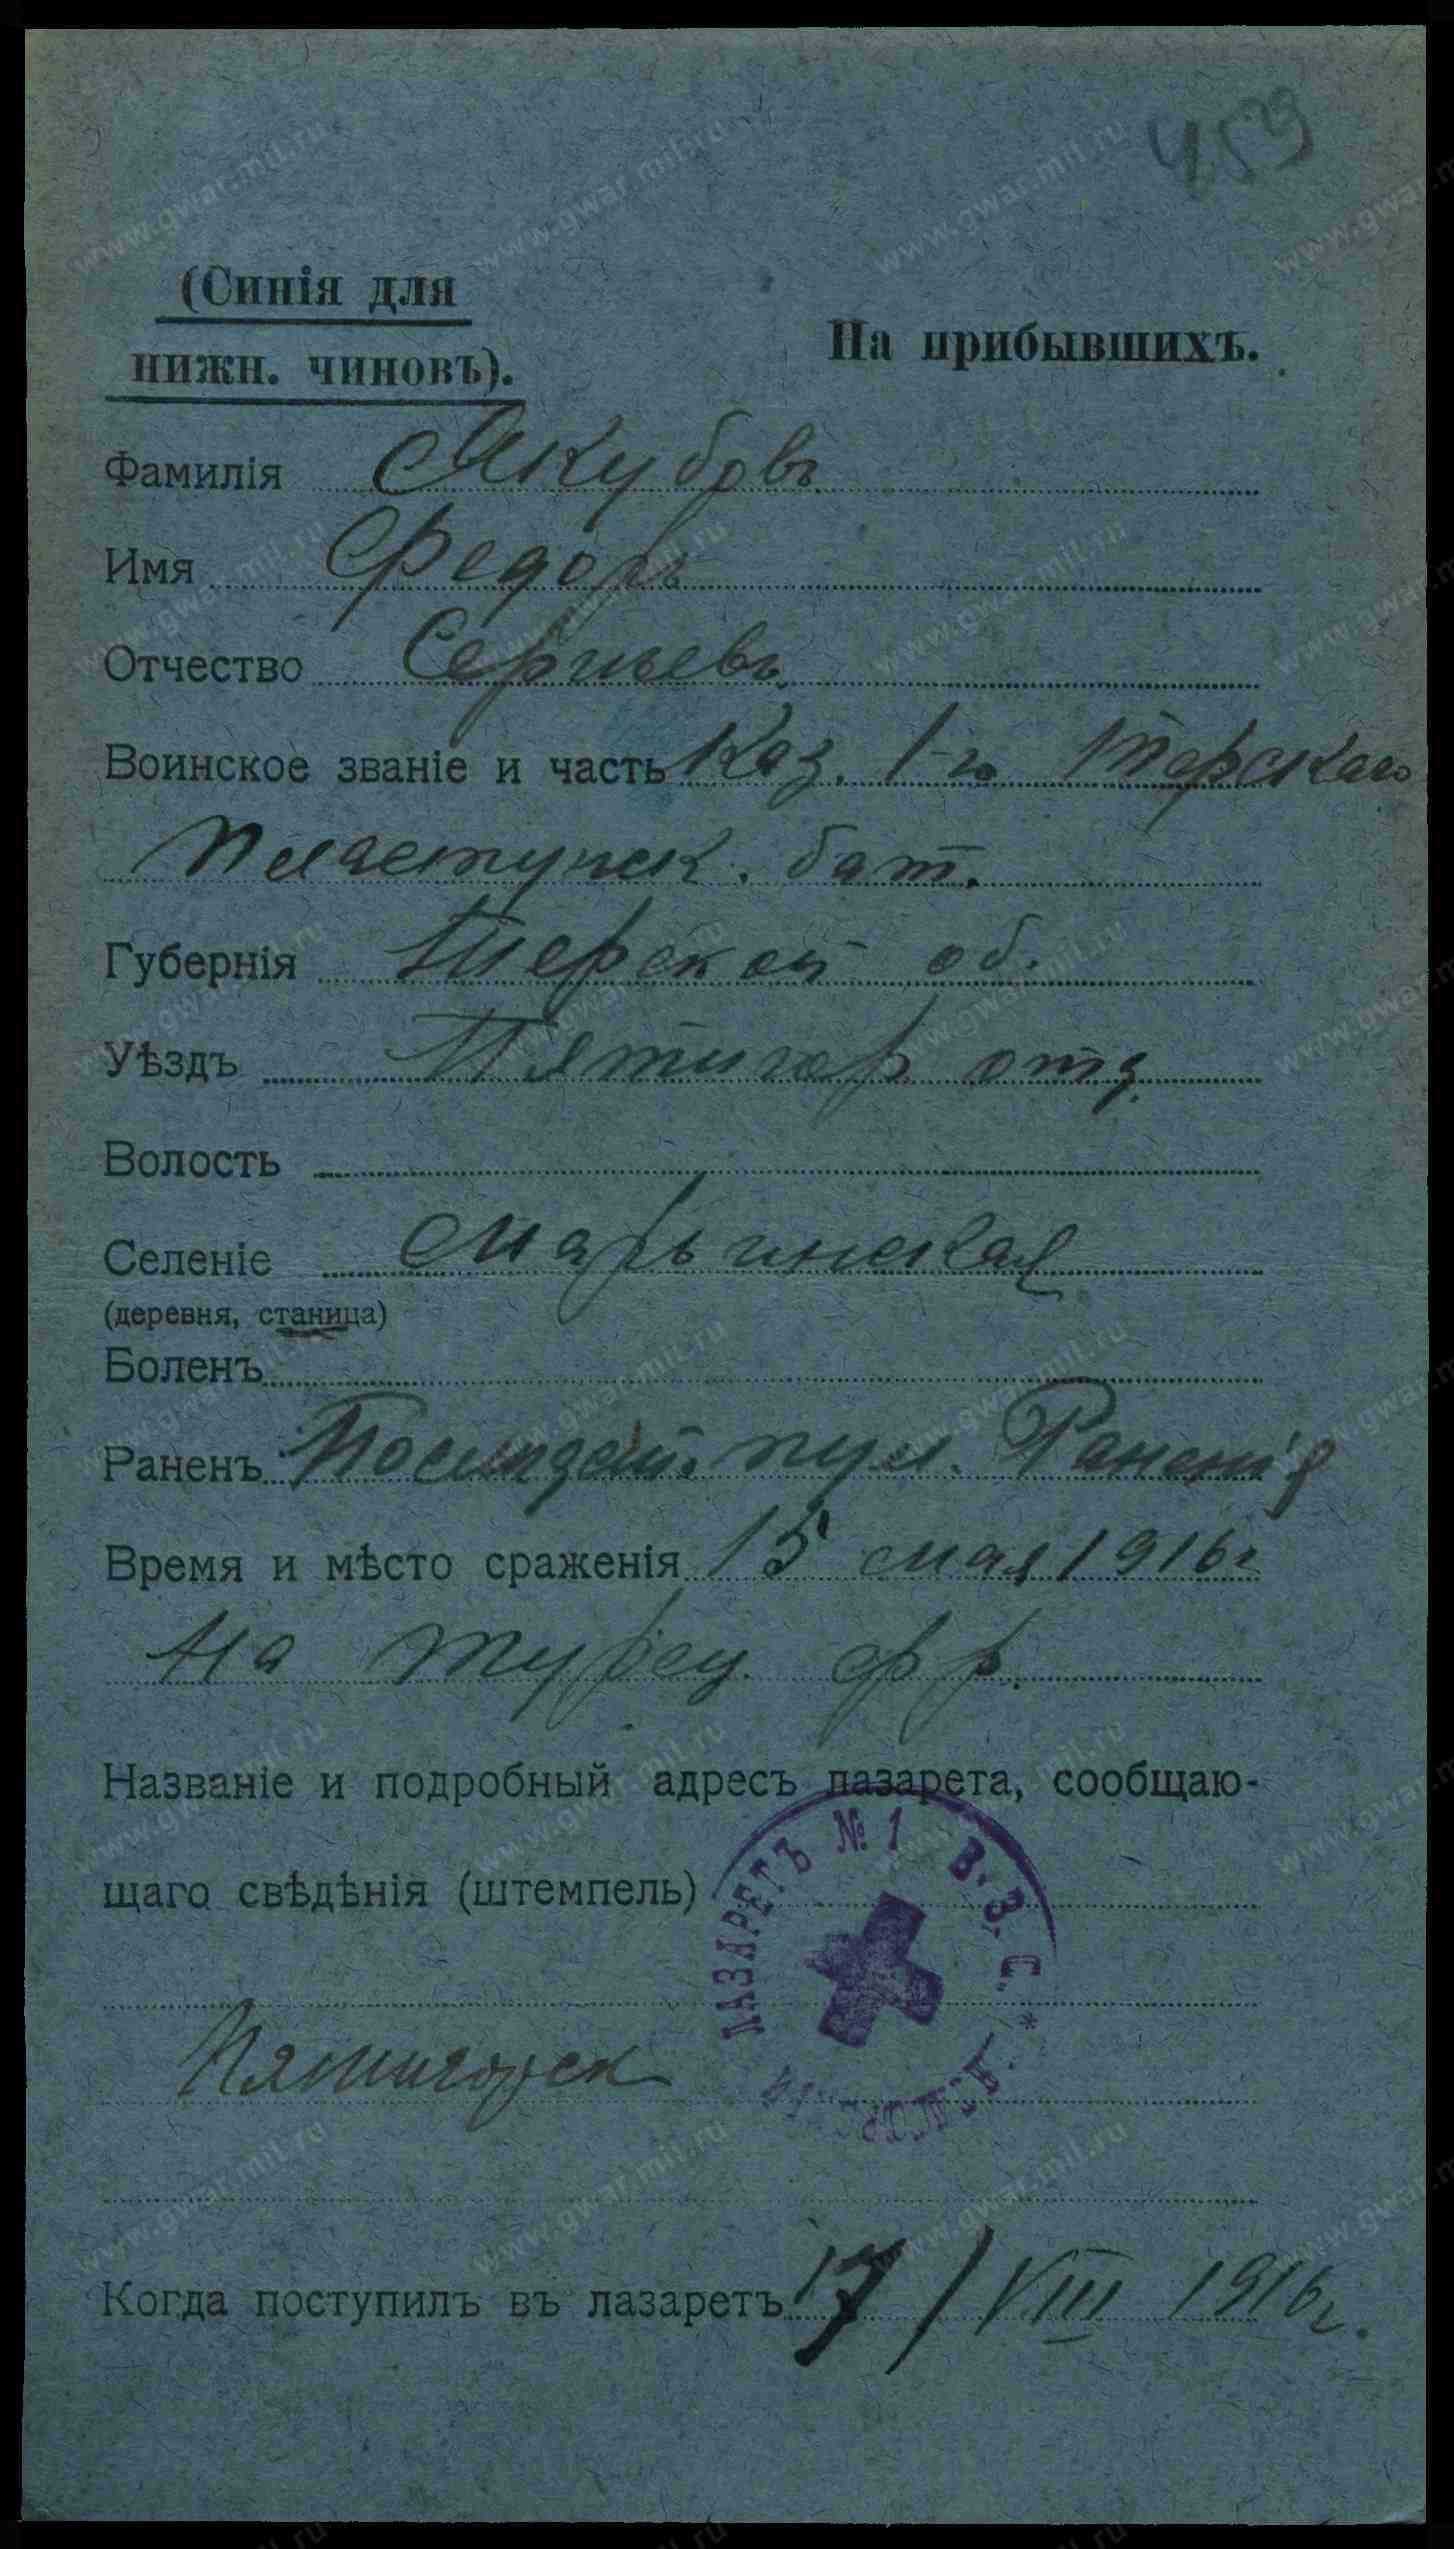 459
(Синія для
нижн. чиновъ).
На прибывшихъ.
Фамилія Якубовъ
Имя Федоръ
Отчество Сергѣевъ
Воинское званіе и часть Каз. 1-го Терскаго
пластунск. бат.
Губернія Терской об.
Уѣздъ Пятигор отд.
Волость
Селеніе Марьинская
(деревня, станица)
Боленъ
Раненъ Послѣдст. пул. Раненія
Время и мѣсто сраженія 15 мая 1916 г
На турец. фр.
Названіе и подробный адресъ лазарета, сообщаю-
щаго свѣдѣнія (штемпель)
ЛАЗАРЕТЪ № 1 В. З. С.
Пятигорск
Когда поступилъ въ лазаретъ 17/VIII 1916 г.